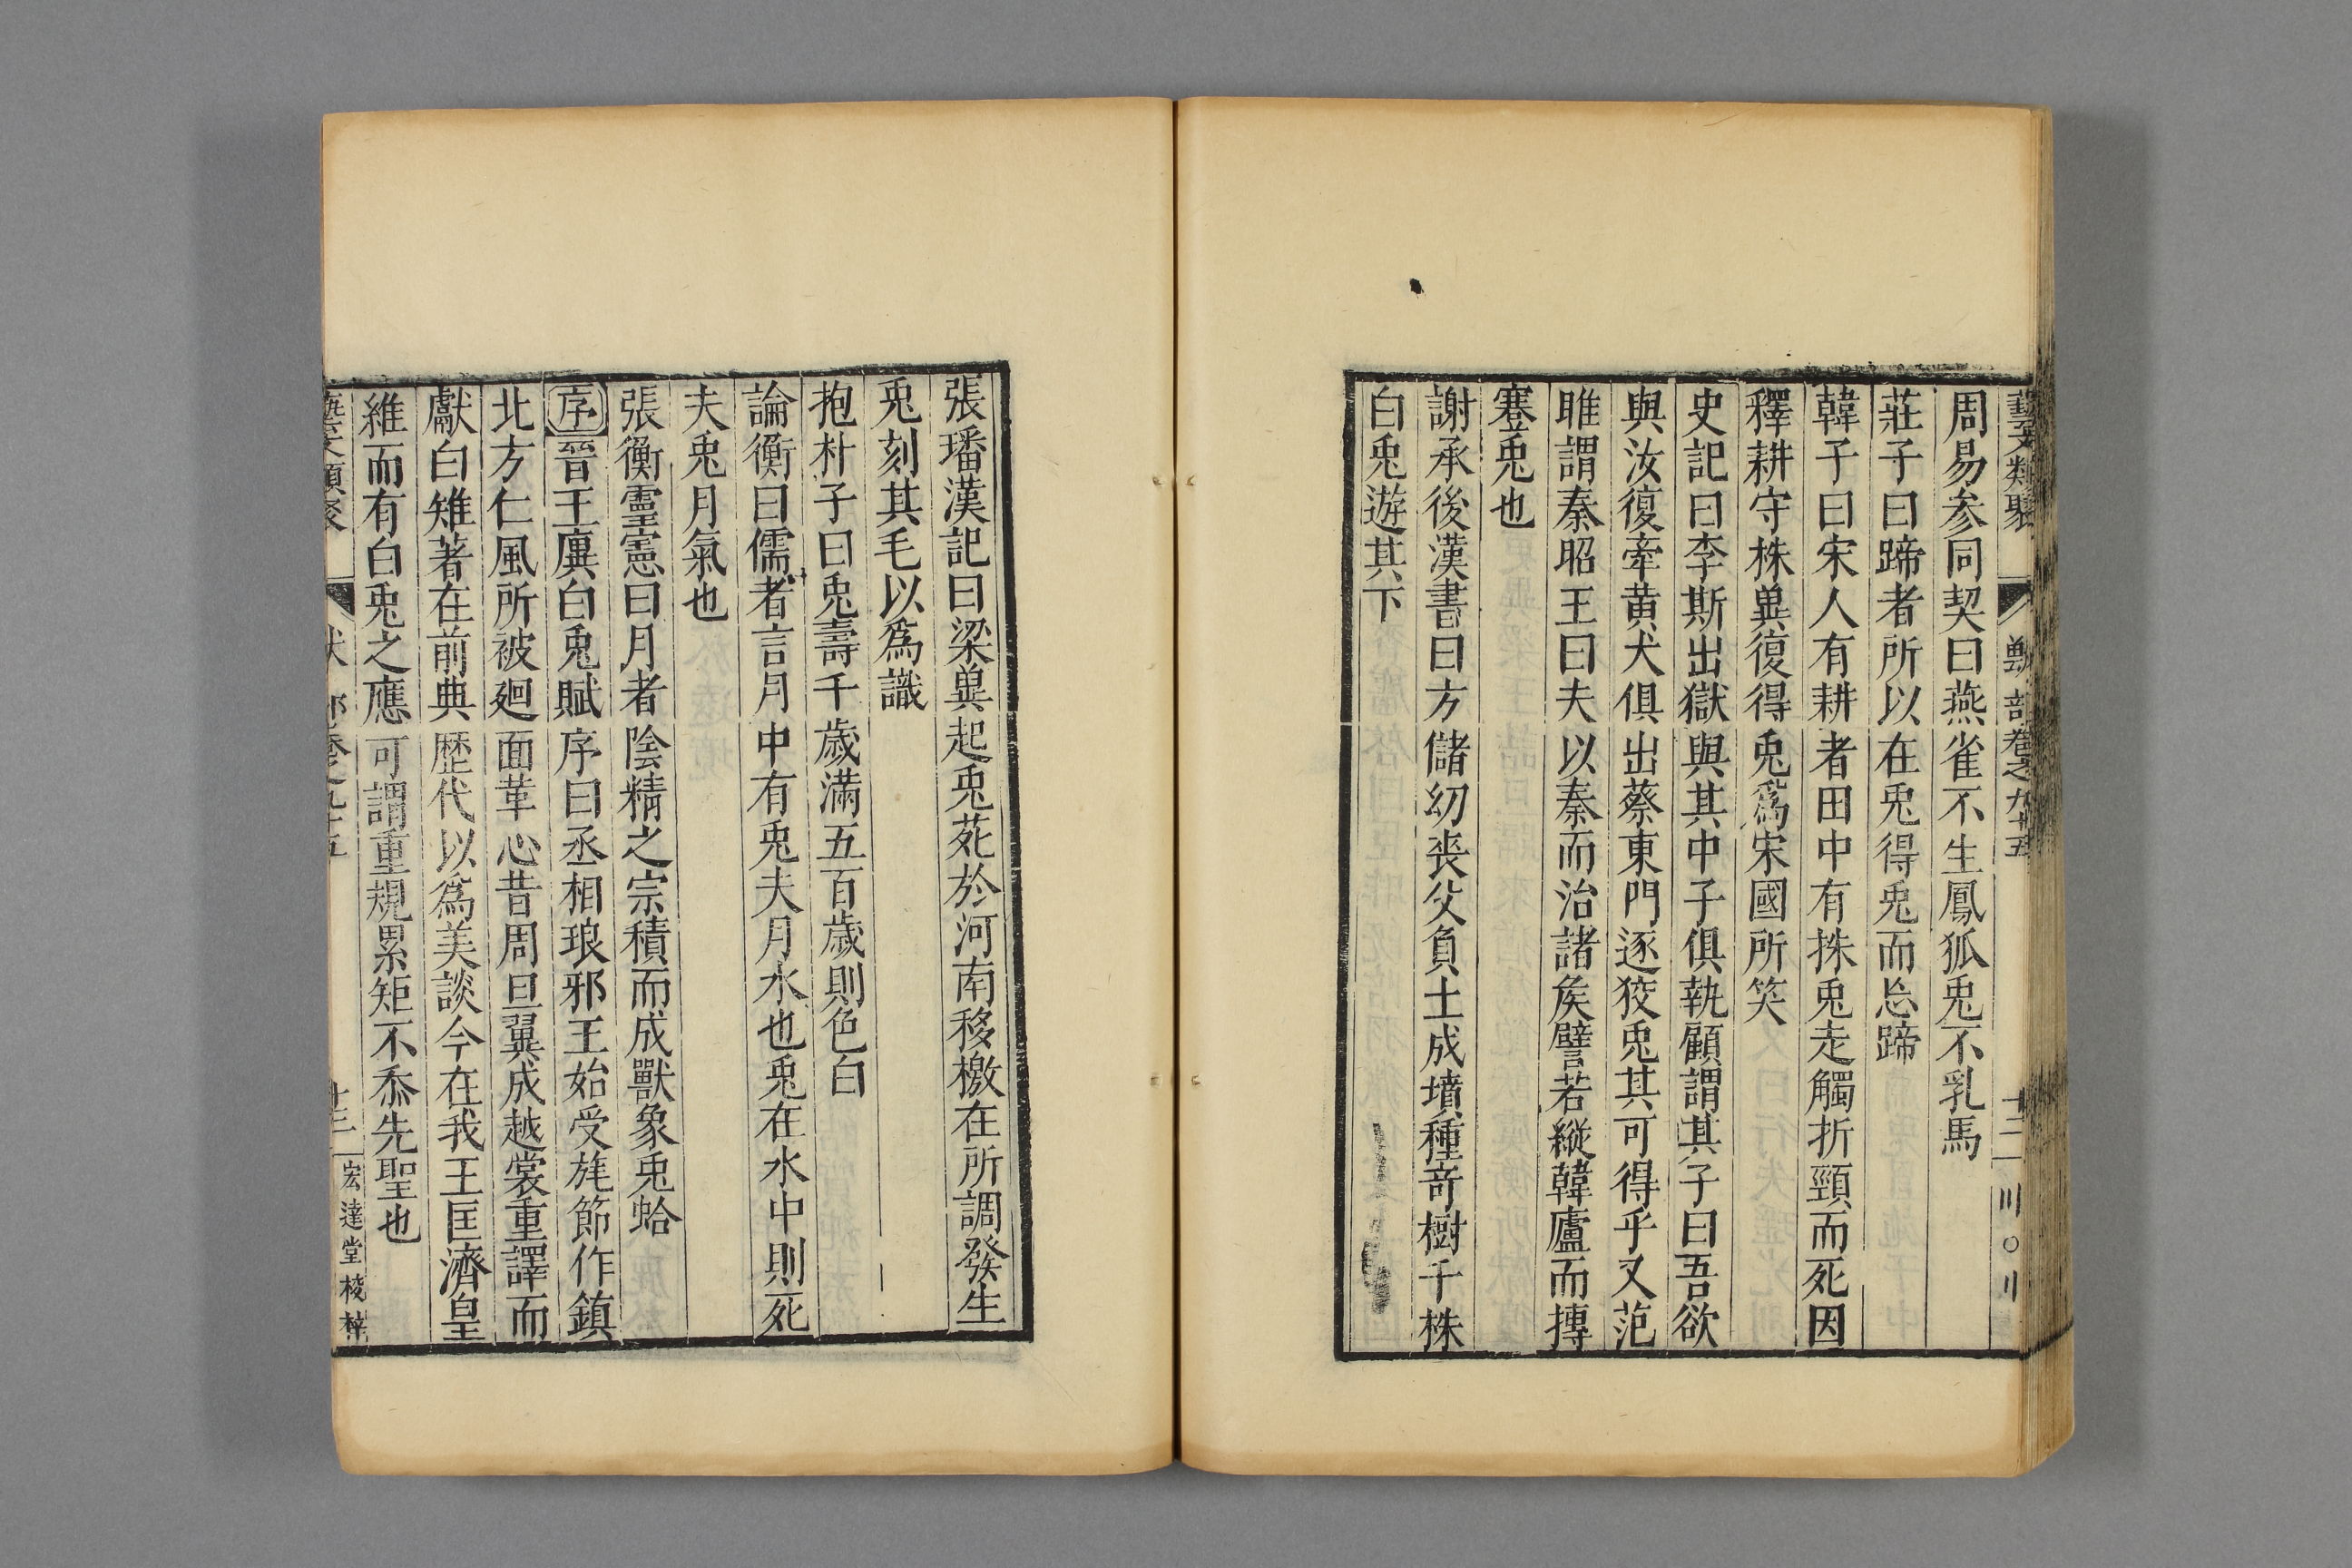 藝文類聚 獸部卷之九十五 十二
周易参同契曰燕雀不生鳳狐兎不乳馬
莊子曰蹄者所以在兎得兎而忘蹄
韓子曰宋人有耕者田中有株兎走觸折頸而死因
釋耕守株兾復得兎爲宋國所笑
史記曰李斯出獄與其中子俱執顧謂其子曰吾欲
與汝復牽黄犬俱出蔡東門逐狡兎其可得乎又范
雎謂秦昭王曰夫以秦而治諸矦譬若縱韓盧而摶
蹇兎也
謝承後漢書曰方儲幼喪父負土成墳種奇樹千株
白兎遊其下
張璠漢記曰梁兾起兎苑於河南移檄在所調發生
兎刻其毛以爲識
抱朴子曰兎壽千歳滿五百歳則色白
論衡曰儒者言月中有兎夫月水也兎在水中則死
夫兎月氣也
張衡靈憲曰月者陰精之宗積而成獸象兎蛤
序晉王廙白兎賦序曰丞相琅邪王始受旄節作鎮
北方仁風所被廻面革心昔周旦翼成越裳重譯而
獻白雉著在前典歴代以爲美談今在我王匡濟皇
維而有白兎之應可謂重規累矩不忝先聖也
藝文類聚 卷之九十五 十三 宏達堂棱梓